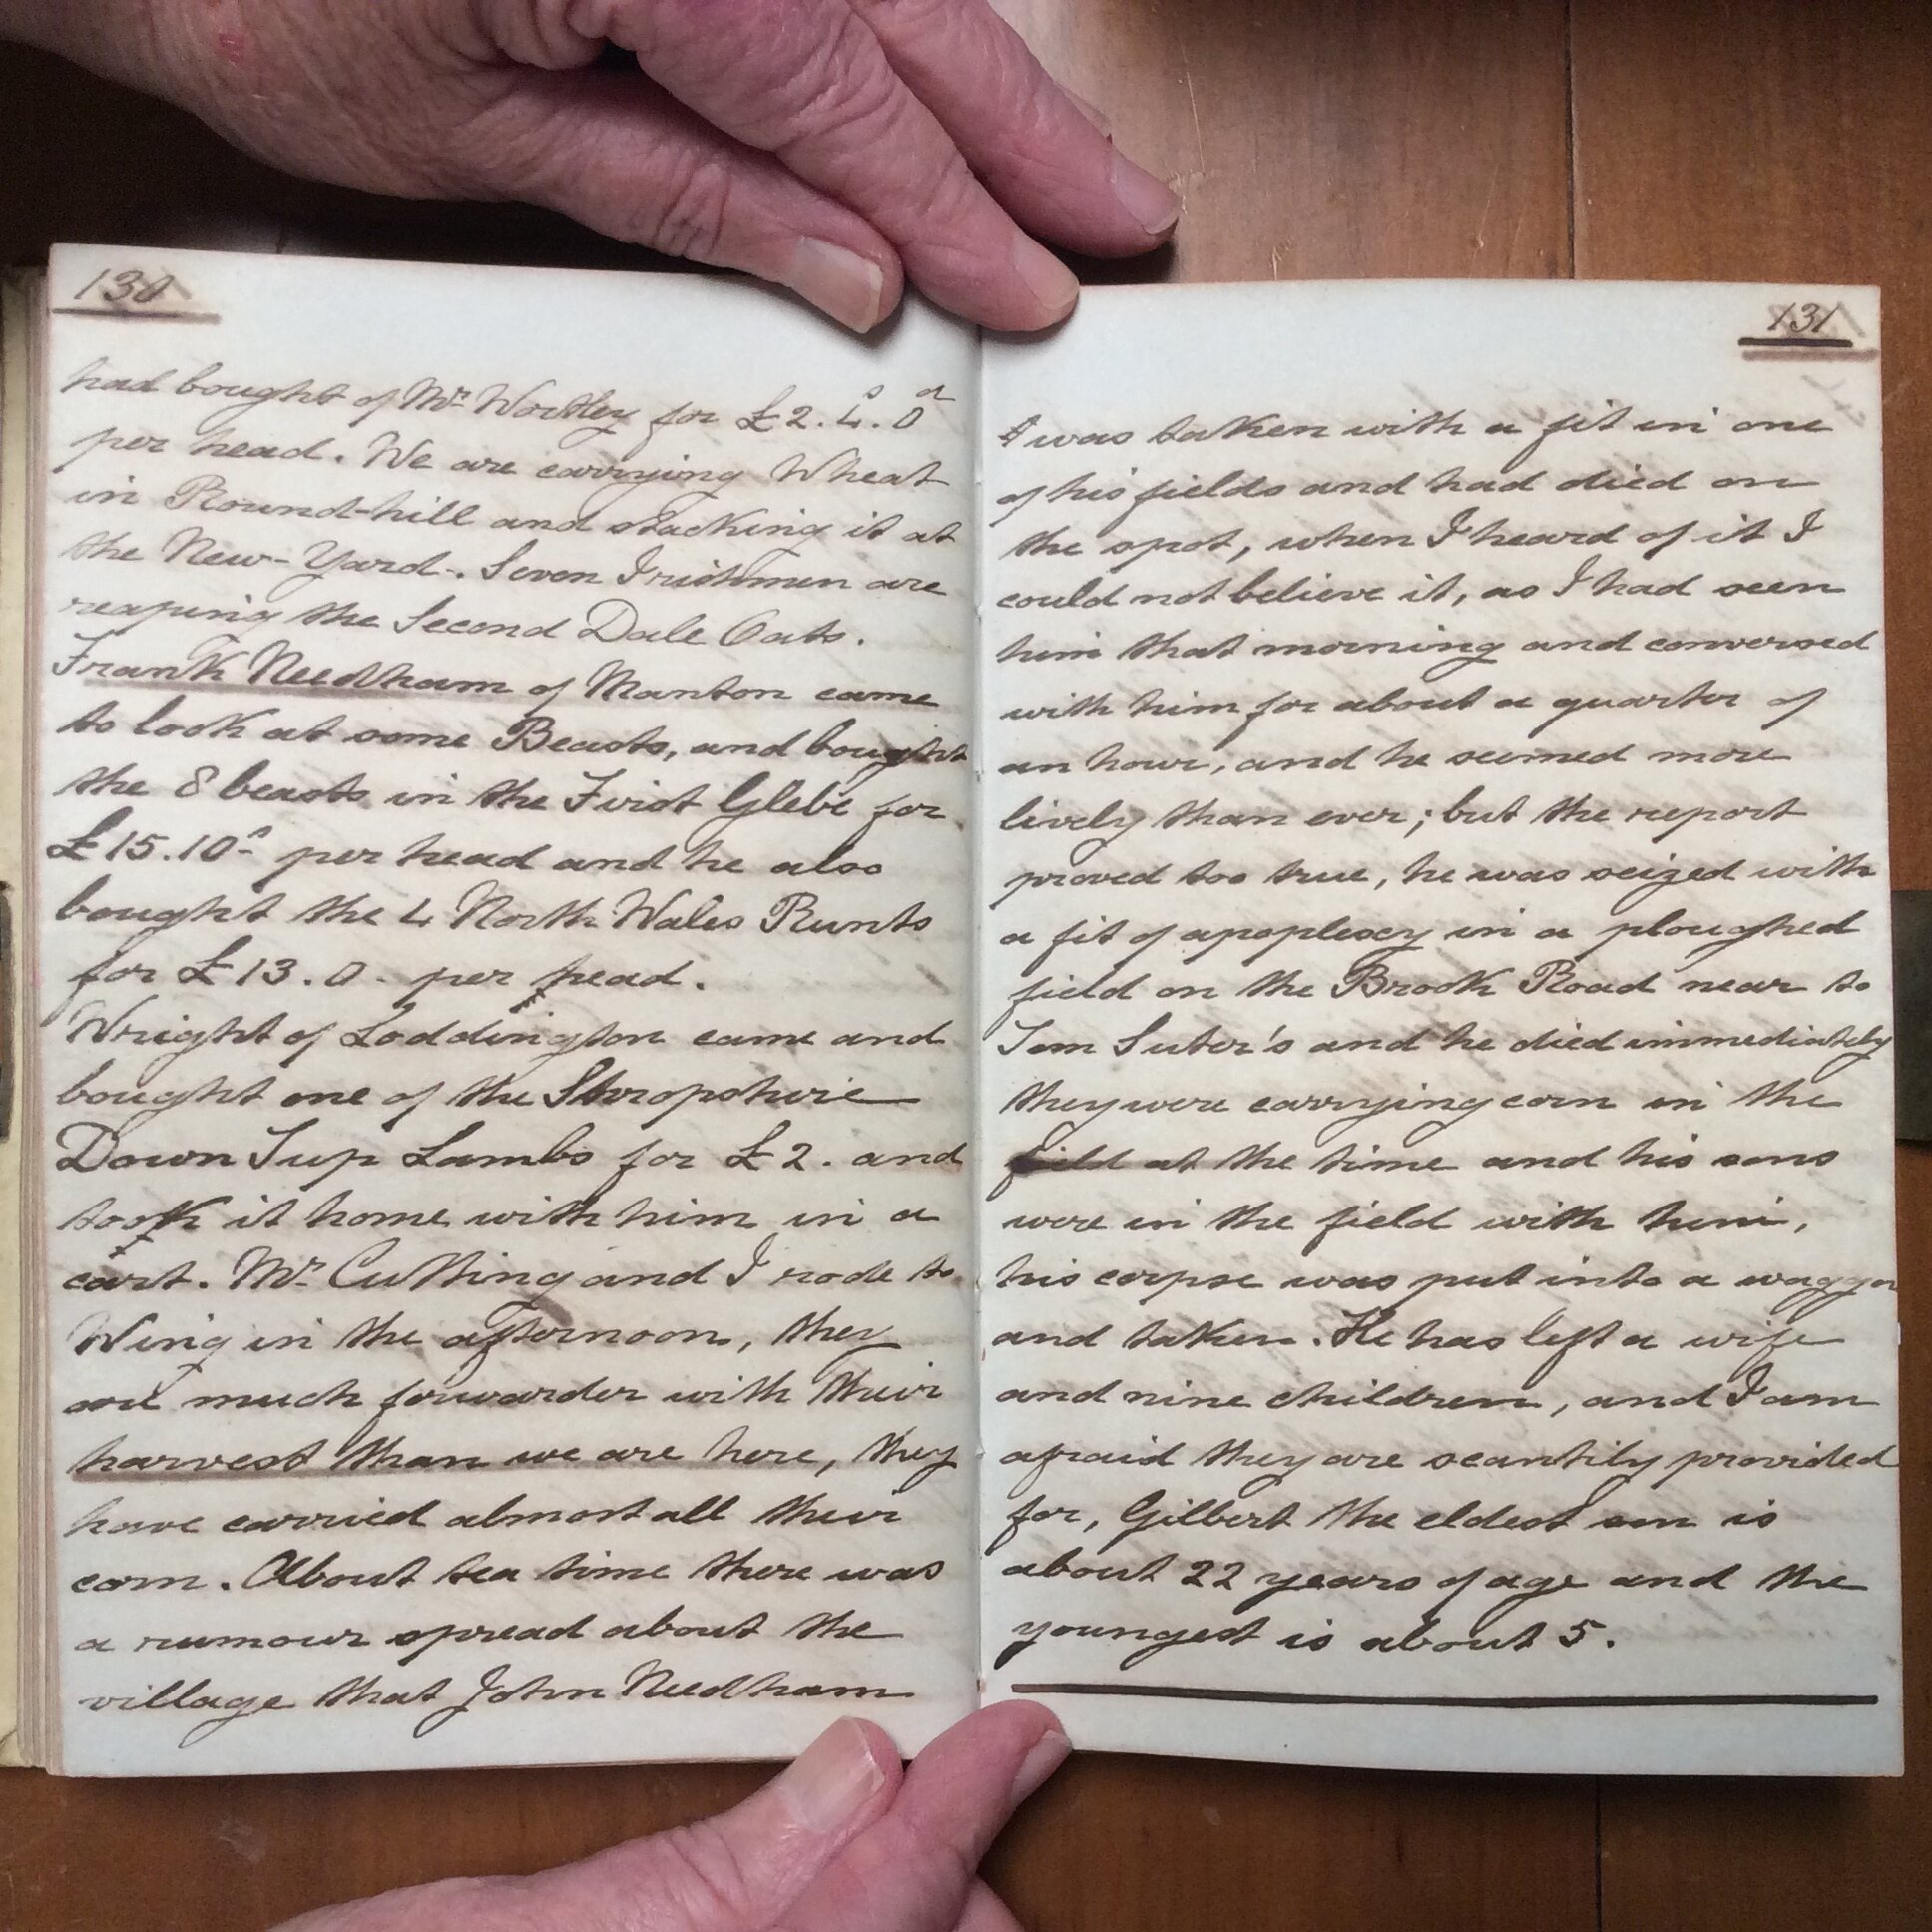 130
had bought of Mr. Wortley for £2.4s.0d
per head. We are carrying Wheat
in Round-hill and stacking it at
the New-Yard-. Seven Irishmen are
reaping the Second Dale Oats.
Frank Needham of Manton came
to look at some Beasts, and bought
the 8 beasts in the First Glebe for
£15.10s per head and he also
bought the 4 North Wales Runts
for £13.0- per head.
Wright of Loddington came and
bought one of the Shropshire
Down Tup Lambs for £2. and
took it home with him in a
cart. Mr. Cutting and I rode to
Wing in the afternoon, they
are much forwarder with their
harvest than we are here, they
have carried almost all their
corn. About tea time there was
a rumour spread about the
village that John Needham
131
was taken with a fit in one
of his fields and had died on
the spot, when I heard of it I
could not believe it, as I had seen
him that morning and conversed
with him for about a quarter of
an hour, and he seemed more
lively than ever; but the report
proved too true, he was seized with
a fit of apoplexy in a ploughed
field on the Brook Road near to
Tom Suter's and he died immediately
they were carrying corn in the
field at the time and his sons
were in the field with him,
his corpse was put into a waggon
and taken. He has left a wife
and nine children, and I am
afraid they are scantily provided
for, Gilbert the eldest son is
about 22 years of age and the
youngest is about 5.